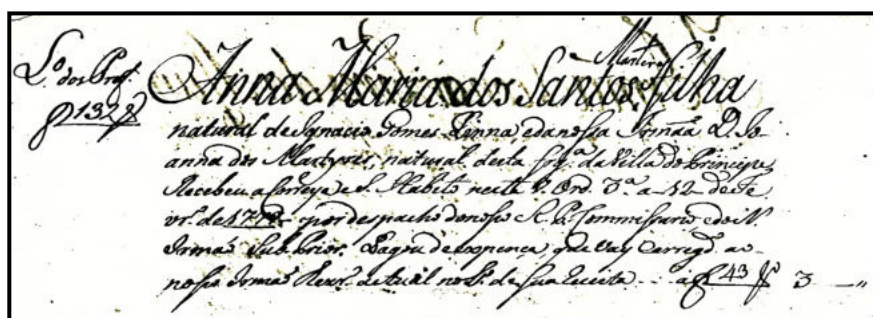 Lº dos Prof.
f 132
Martires
Anna Maria dos Santos, filha
natural de Ignacio Gomes Pinna, e da nossa Irmãa D. Jo
anna dos Martyres, natural desta frgª da Villa do Principe,
Recebeu a Correya e S. Habito nesta V. Ord. 3ª a 12 de Fe
vrº de por despacho do nosso R. P. Commissario e do N.
Irmaõ Sub Prior. Pagou de expença, que vay Carregdª ao
nosso Irmaõ actual no Lº de sua Receita a f 43 3 — "